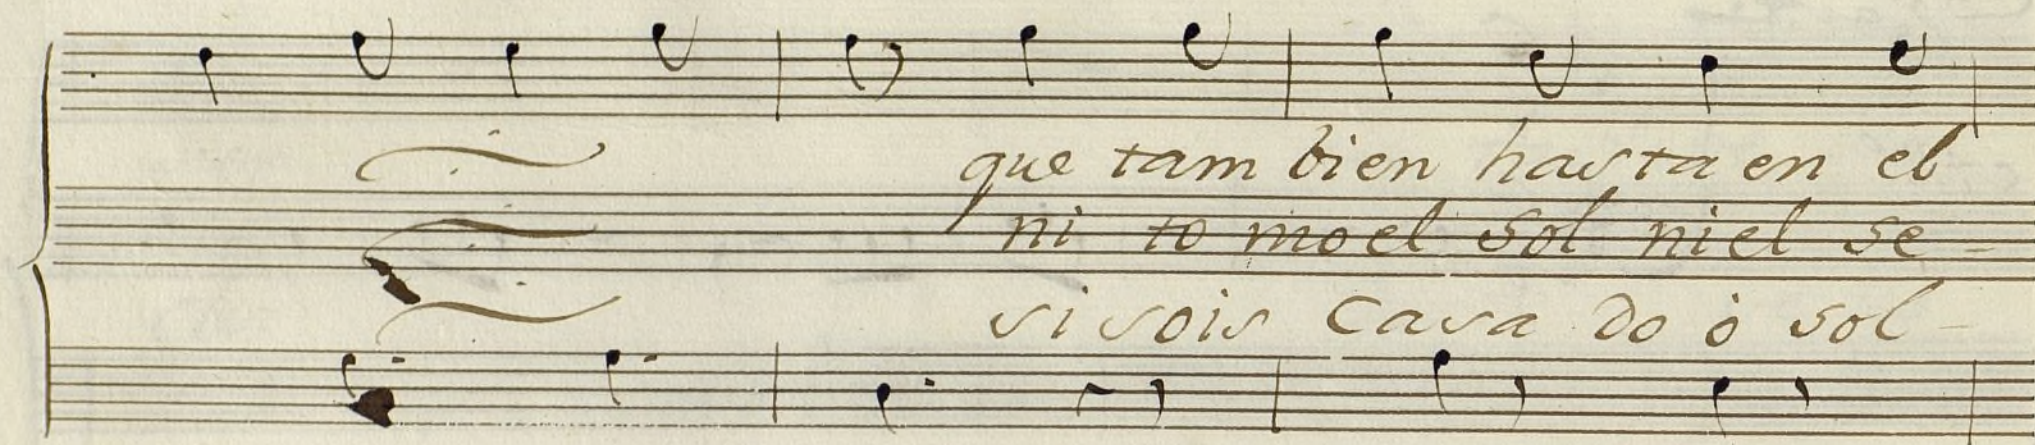 que tam bien hasta en el
ni to mo el sol ni el se -
si sois Casa do ò sol -